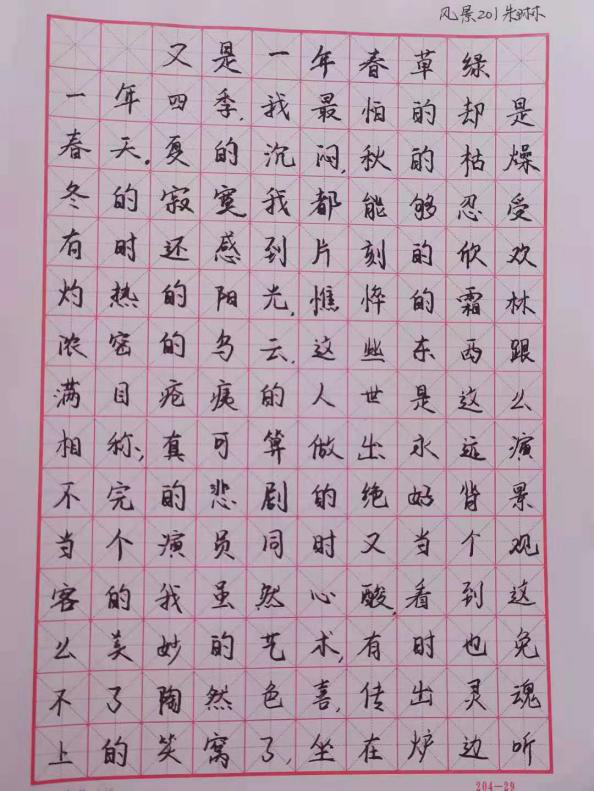 风景201 朱琳
又是一年春草绿
一年四季,我最怕的却是
春天。夏的沉闷,秋的枯燥
冬的寂寞我都能够忍受
有时还感到片刻的欣欢
灼热的阳光,憔悴的霜林
浓密的乌云,这些东西跟
满目疮痍的人世是这么
相称,真可算做出永远演
不完的悲剧的绝好背景
当个演员同时又当个观
客的我虽然心酸,看到这
么美妙的艺术,有时也免
不了陶然色喜,传出灵魂
上的笑窝了,坐在炉边听
204—29